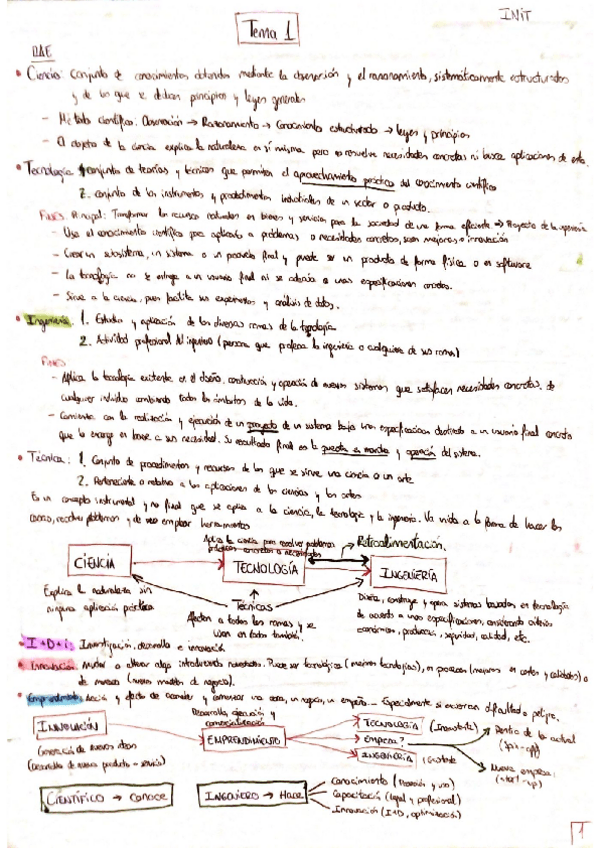 INIT
Tema 1
RAE
• Ciencia: Conjunto de conocimientos obtenidos mediante la observación y el razonamiento, sistemáticamente estructurados
y de los que se deducen principios y leyes generales
- Método científico: Observación → Razonamiento → Conocimiento estructurado → leyes y principios
- El objeto de la ciencia explica la naturaleza en sí misma pero no resuelve necesidades concretas ni busca aplicaciones de esta.
• Tecnología: conjunto de teorías y técnicas que permiten el aprovechamiento práctico del conocimiento científico
2. conjunto de los instrumentos y procedimientos industriales de un sector o producto.
Fines: Principal: Transformar los recursos naturales en bienes y servicios para la sociedad de una forma eficiente → Proyecto de la ingeniería
- Usa el conocimiento científico para aplicarlo a problemas o necesidades concretas, sean mejoras o innovación
- Crear un subsistema, un sistema o un producto final y puede ser un producto de forma física o en software
- La tecnología no se entrega a un usuario final ni se adecúa a unas especificaciones concretas.
- Sirve a la ciencia, pues facilita sus experimentos y análisis de datos.
• Ingeniería: 1. Estudio y aplicación de las diversas ramas de la tecnología
2. Actividad profesional del ingeniero (persona que profesa la ingeniería o cualquiera de sus ramas)
Fines
- Aplica la tecnología existente en el diseño, construcción y operación de nuevos sistemas que satisfacen necesidades concretas, de
cualquier individuo combinando todos los ámbitos de la vida.
- Comienza con la realización y ejecución de un proyecto de un sistema bajo una especificación destinado a un usuario final concreto
que lo encarga en base a sus necesidad. Su resultado final es la puesta en marcha y operación del sistema.
• Técnica: 1. Conjunto de procedimientos y recursos de los que se sirve una ciencia o un arte
2. Perteneciente o relativo a las aplicaciones de las ciencias y las artes
Es un concepto instrumental y no final que se aplica a la ciencia, la tecnología y la ingeniería. Va unida a la forma de hacer las
cosas, resolver problemas y de emplear herramientas
Aplica la ciencia para resolver problemas
prácticos concretos o necesidades
Retroalimentación.
CIENCIA
TECNOLOGÍA
INGENIERÍA
Explica la naturaleza sin
ninguna aplicación práctica
Técnicas
Afectan a todas las ramas y se
usan en todas también.
Diseña, construye y opera sistemas basados en tecnología
de acuerdo a unas especificaciones, considerando criterios
económicos, producción, seguridad, calidad, etc.
• I+D+i: Investigación, desarrollo e innovación
• Innovación: Mudar o alterar algo introduciendo novedades. Puede ser tecnológica (mejores tecnologías), en procesos (mejores en costes y calidades) o
de mercado (nuevo modelo de negocio).
• Emprendimiento: Acción y efecto de acometer y comenzar una obra, un negocio, un empeño... Especialmente si encierran dificultad o peligro.
Desarrollo, ejecución y
comercialización
INNOVACIÓN
(Generación de nuevas ideas)
(Desarrollo de nuevo producto - servicio)
EMPRENDIMIENTO
TECNOLOGÍA (Inexistente)
Empresa?
INGENIERÍA (Existente
Dentro de la actual
(spin-off)
Nueva empresa:
(start-up)
CIENTÍFICO → CONOCE
INGENIERO → Hace
Conocimiento (Posesión y uso)
Capacitación (legal y profesional)
Innovación (I+D, optimización)
1